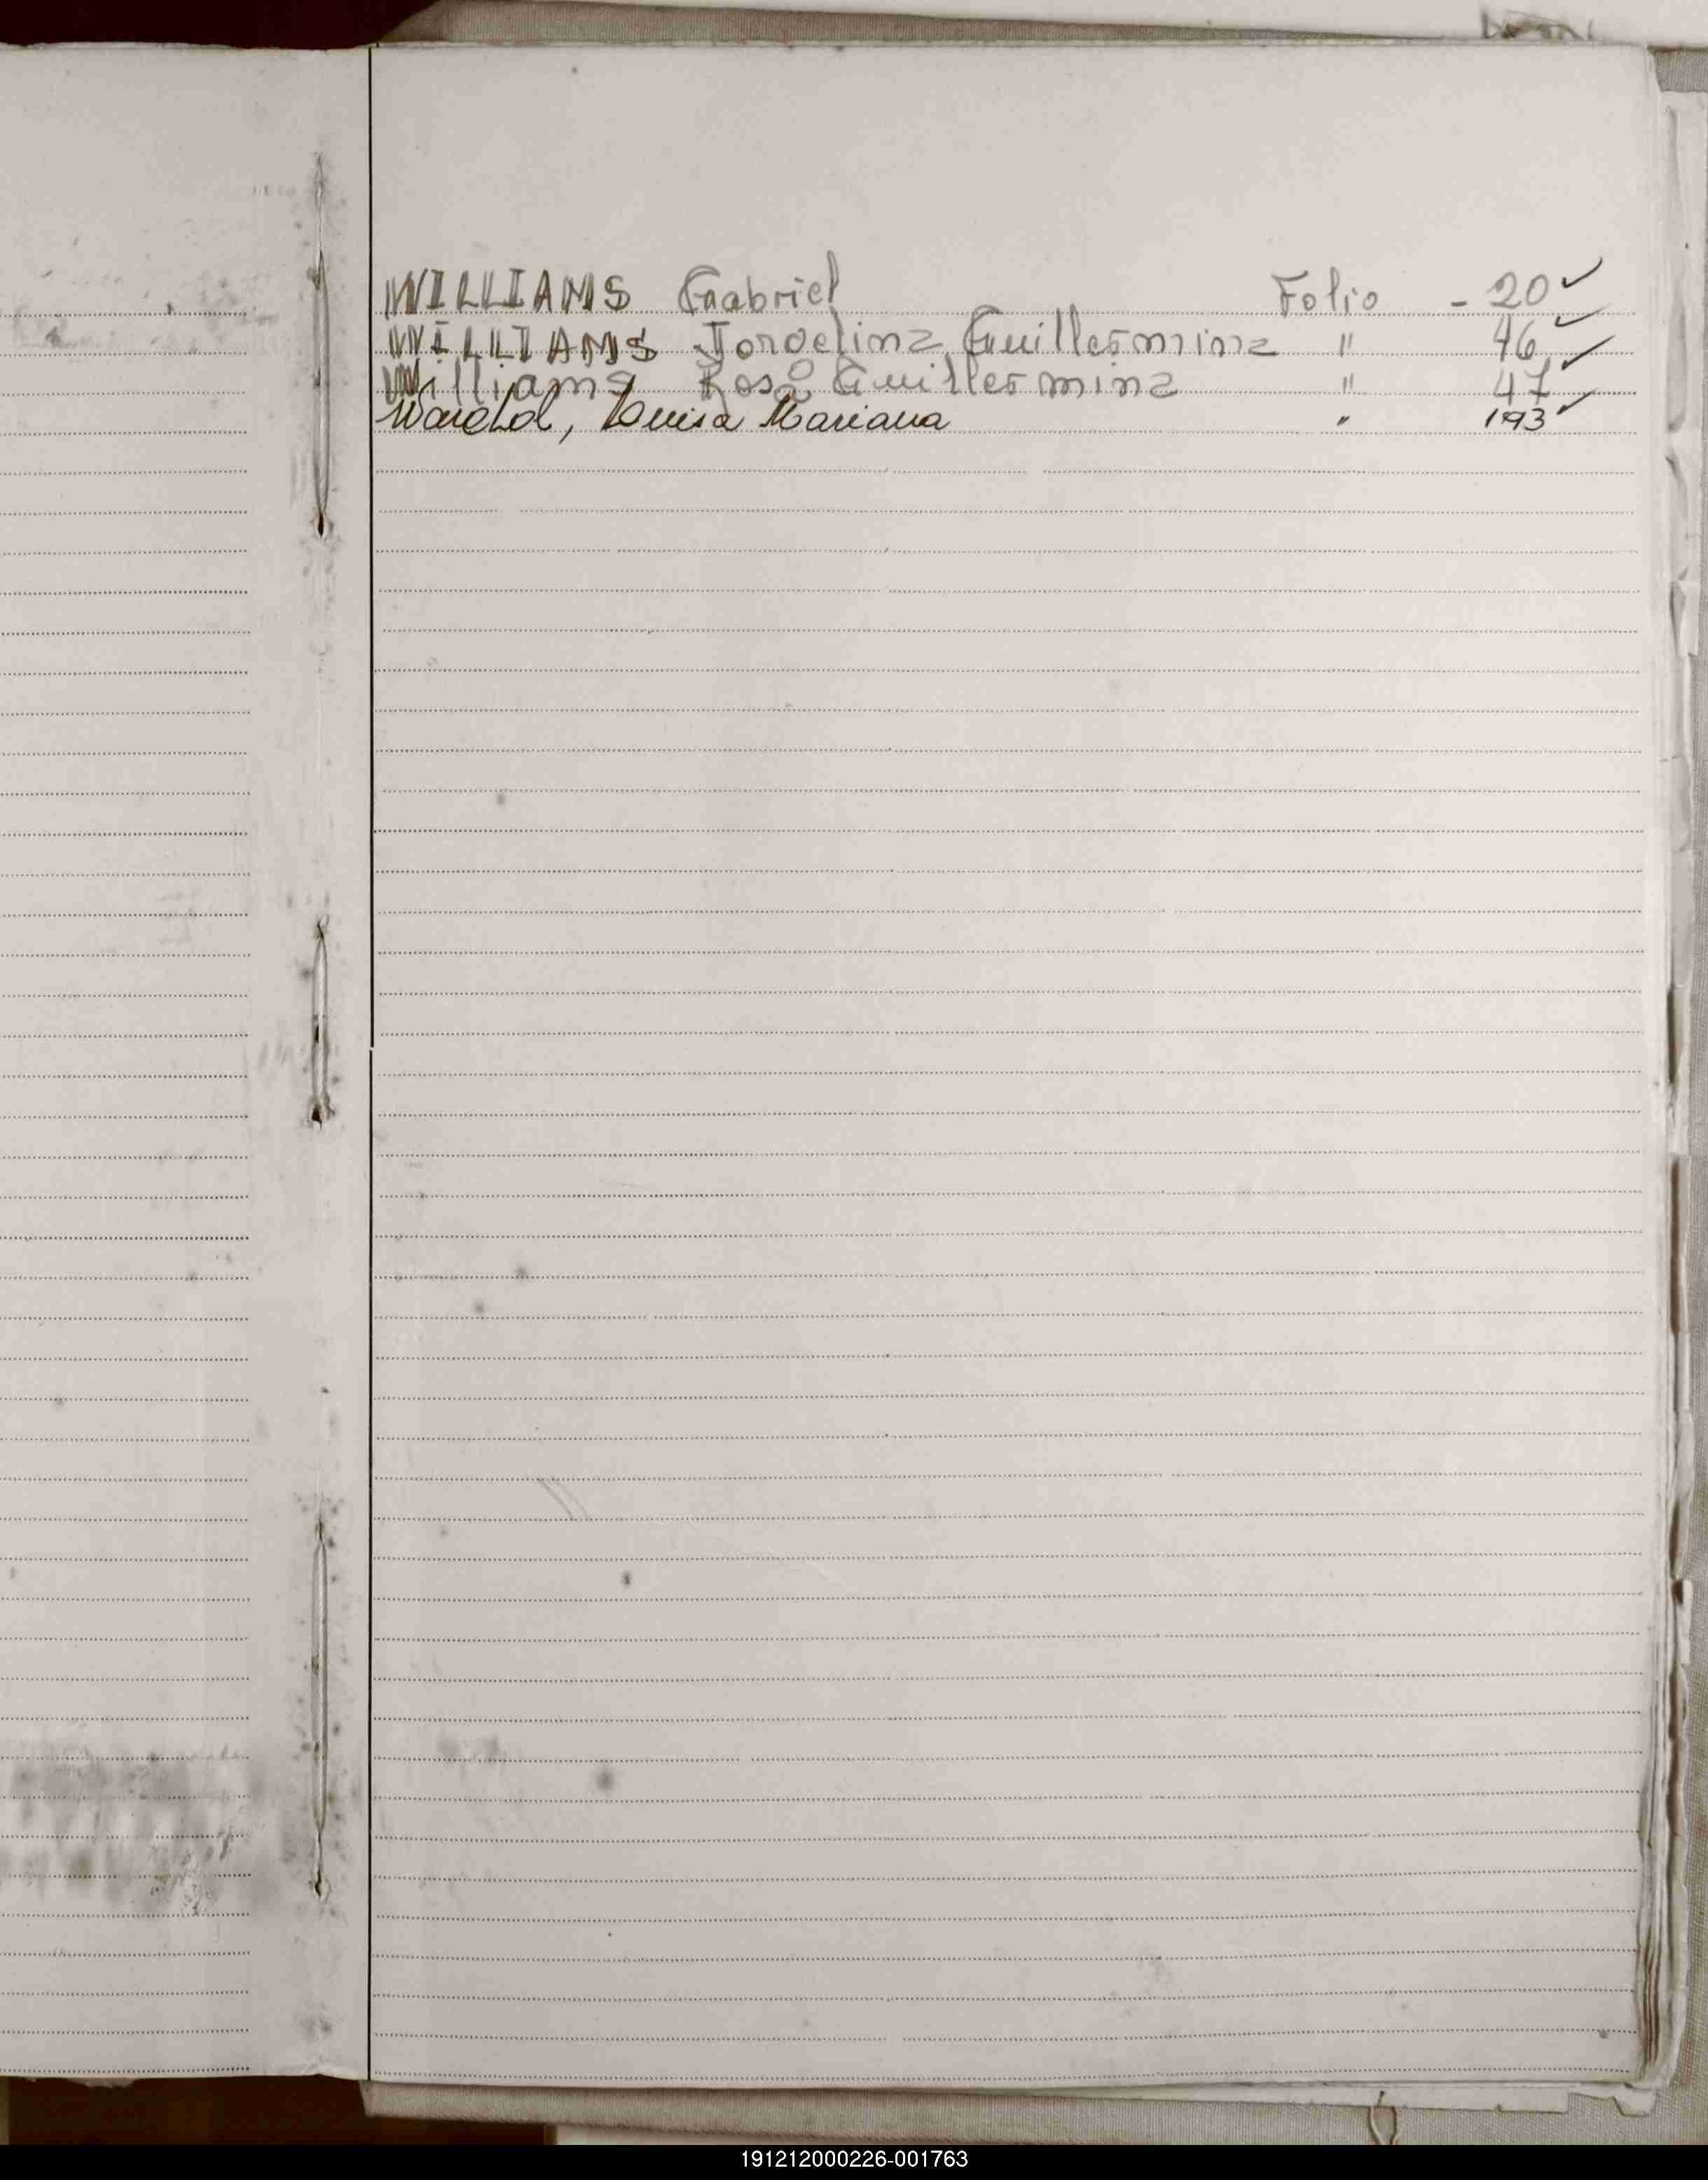 WILLIAMS Gabriel Folio - 20 ✓
WILLIAMS Jorgelina Guillermina " 46 ✓
Williams Rosa Guillermina " 47 ✓
Luisa Mariana " 193 ✓
191212000226-001763